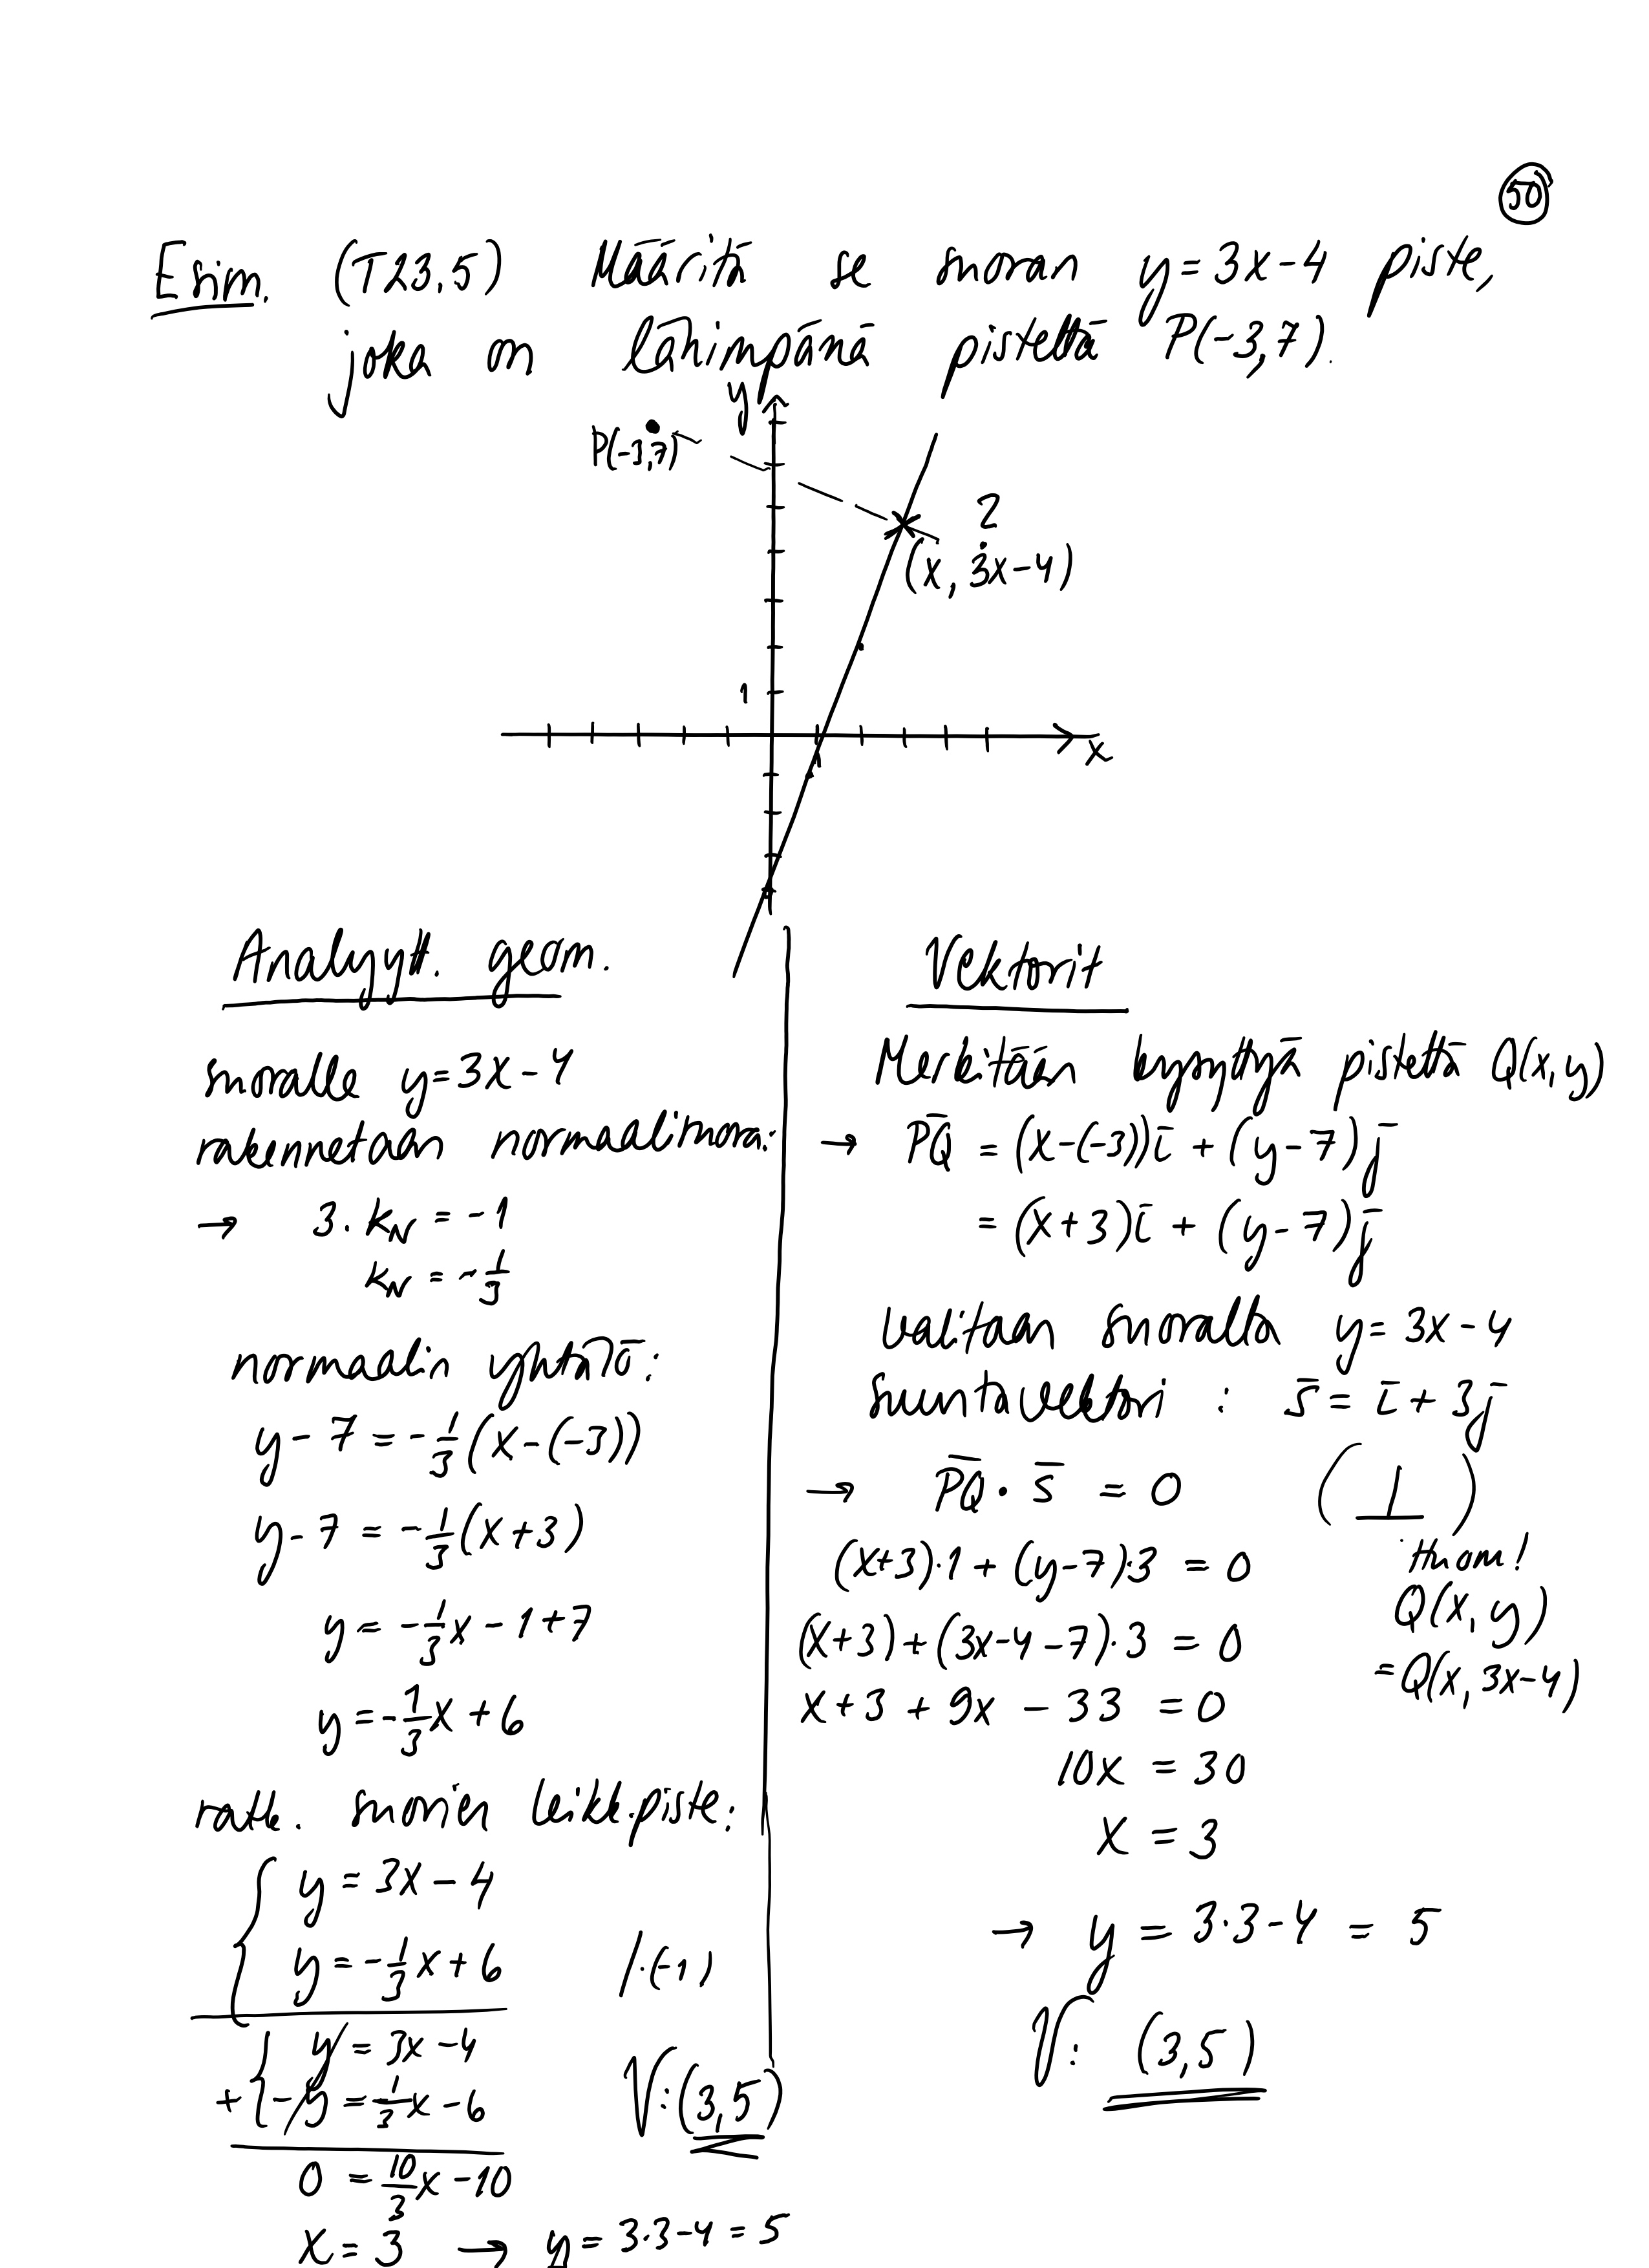 50
Esim. (T23,5) Määritä se suoran y = 3x - 4 piste,
joka on lähimpänä pistettä P(-3,7).
y
P(-3,7)
?
(x, 3x-4)
1
x
1
Analyytt. geom.
suoralle y = 3x - 4
rakennetaan normaalisuora:
→ 3 · kN = -1
kN = -1/3
normaalin yhtälö:
y - 7 = -1/3 (x - (-3))
y - 7 = -1/3 (x + 3)
y = -1/3 x - 1 + 7
y = -1/3 x + 6
ratk. suorien leikk.piste:
y = 3x - 4
y = -1/3 x + 6 /·(-1)
y = 3x - 4
+ -y = 1/3 x - 6
0 = 10/3 x - 10
x = 3 → y = 3·3-4 = 5
V: (3,5)
Vektorit
Merkitään kysyttyä pistettä Q(x,y)
→ PQ = (x-(-3))i + (y-7)j
= (x+3)i + (y-7)j
valitaan suoralta y = 3x - 4
suuntavektori : s = i + 3j
→ PQ · s = 0 (⊥)
(x+3)·1 + (y-7)·3 = 0
(x+3) + (3x-4-7)·3 = 0
x + 3 + 9x - 33 = 0
10x = 30
x = 3
→ y = 3·3-4 = 5
V: (3,5)
Huom!
Q(x, y)
= Q(x, 3x-4)